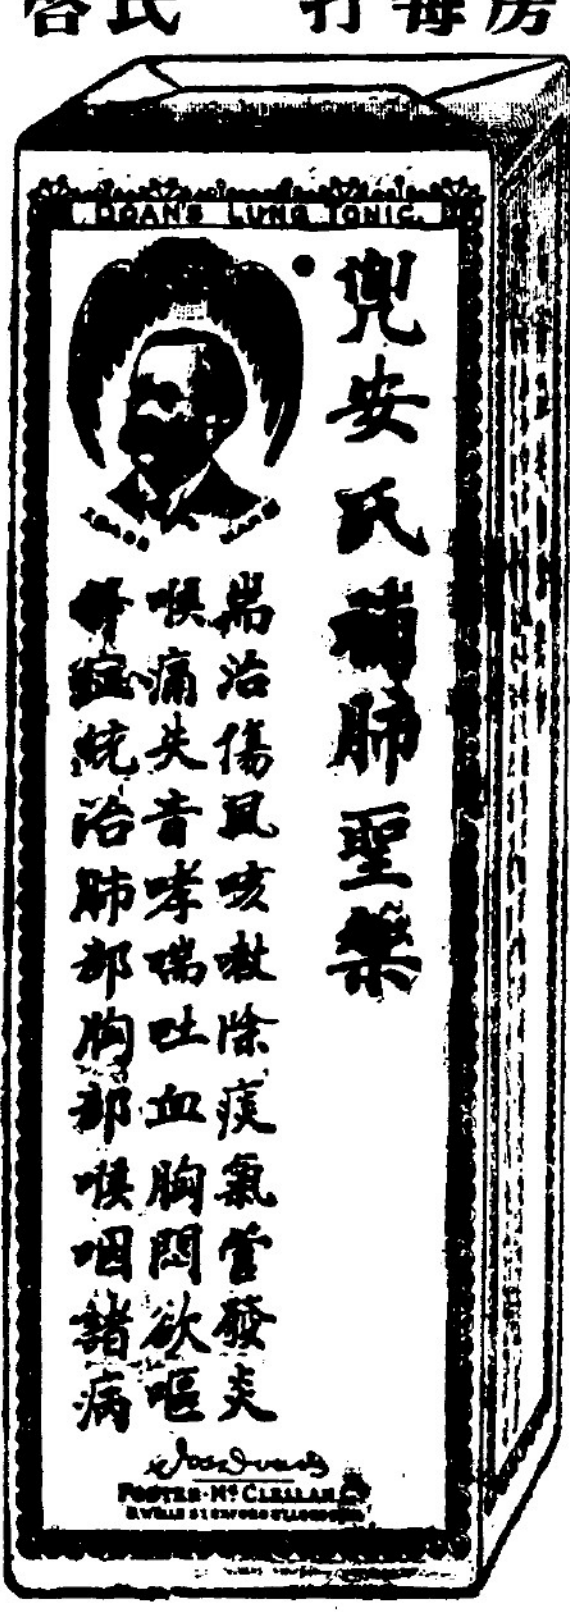 啓 氏 打 每 房
DOAN'S LUNG TONIC.
兜安氏補肺聖藥
耑治傷風咳嗽除痰氣管發炎
喉痛失音哮喘吐血胸悶欲嘔
治肺部胸部喉咽諸病
FOSTER-McCLELLAN Co